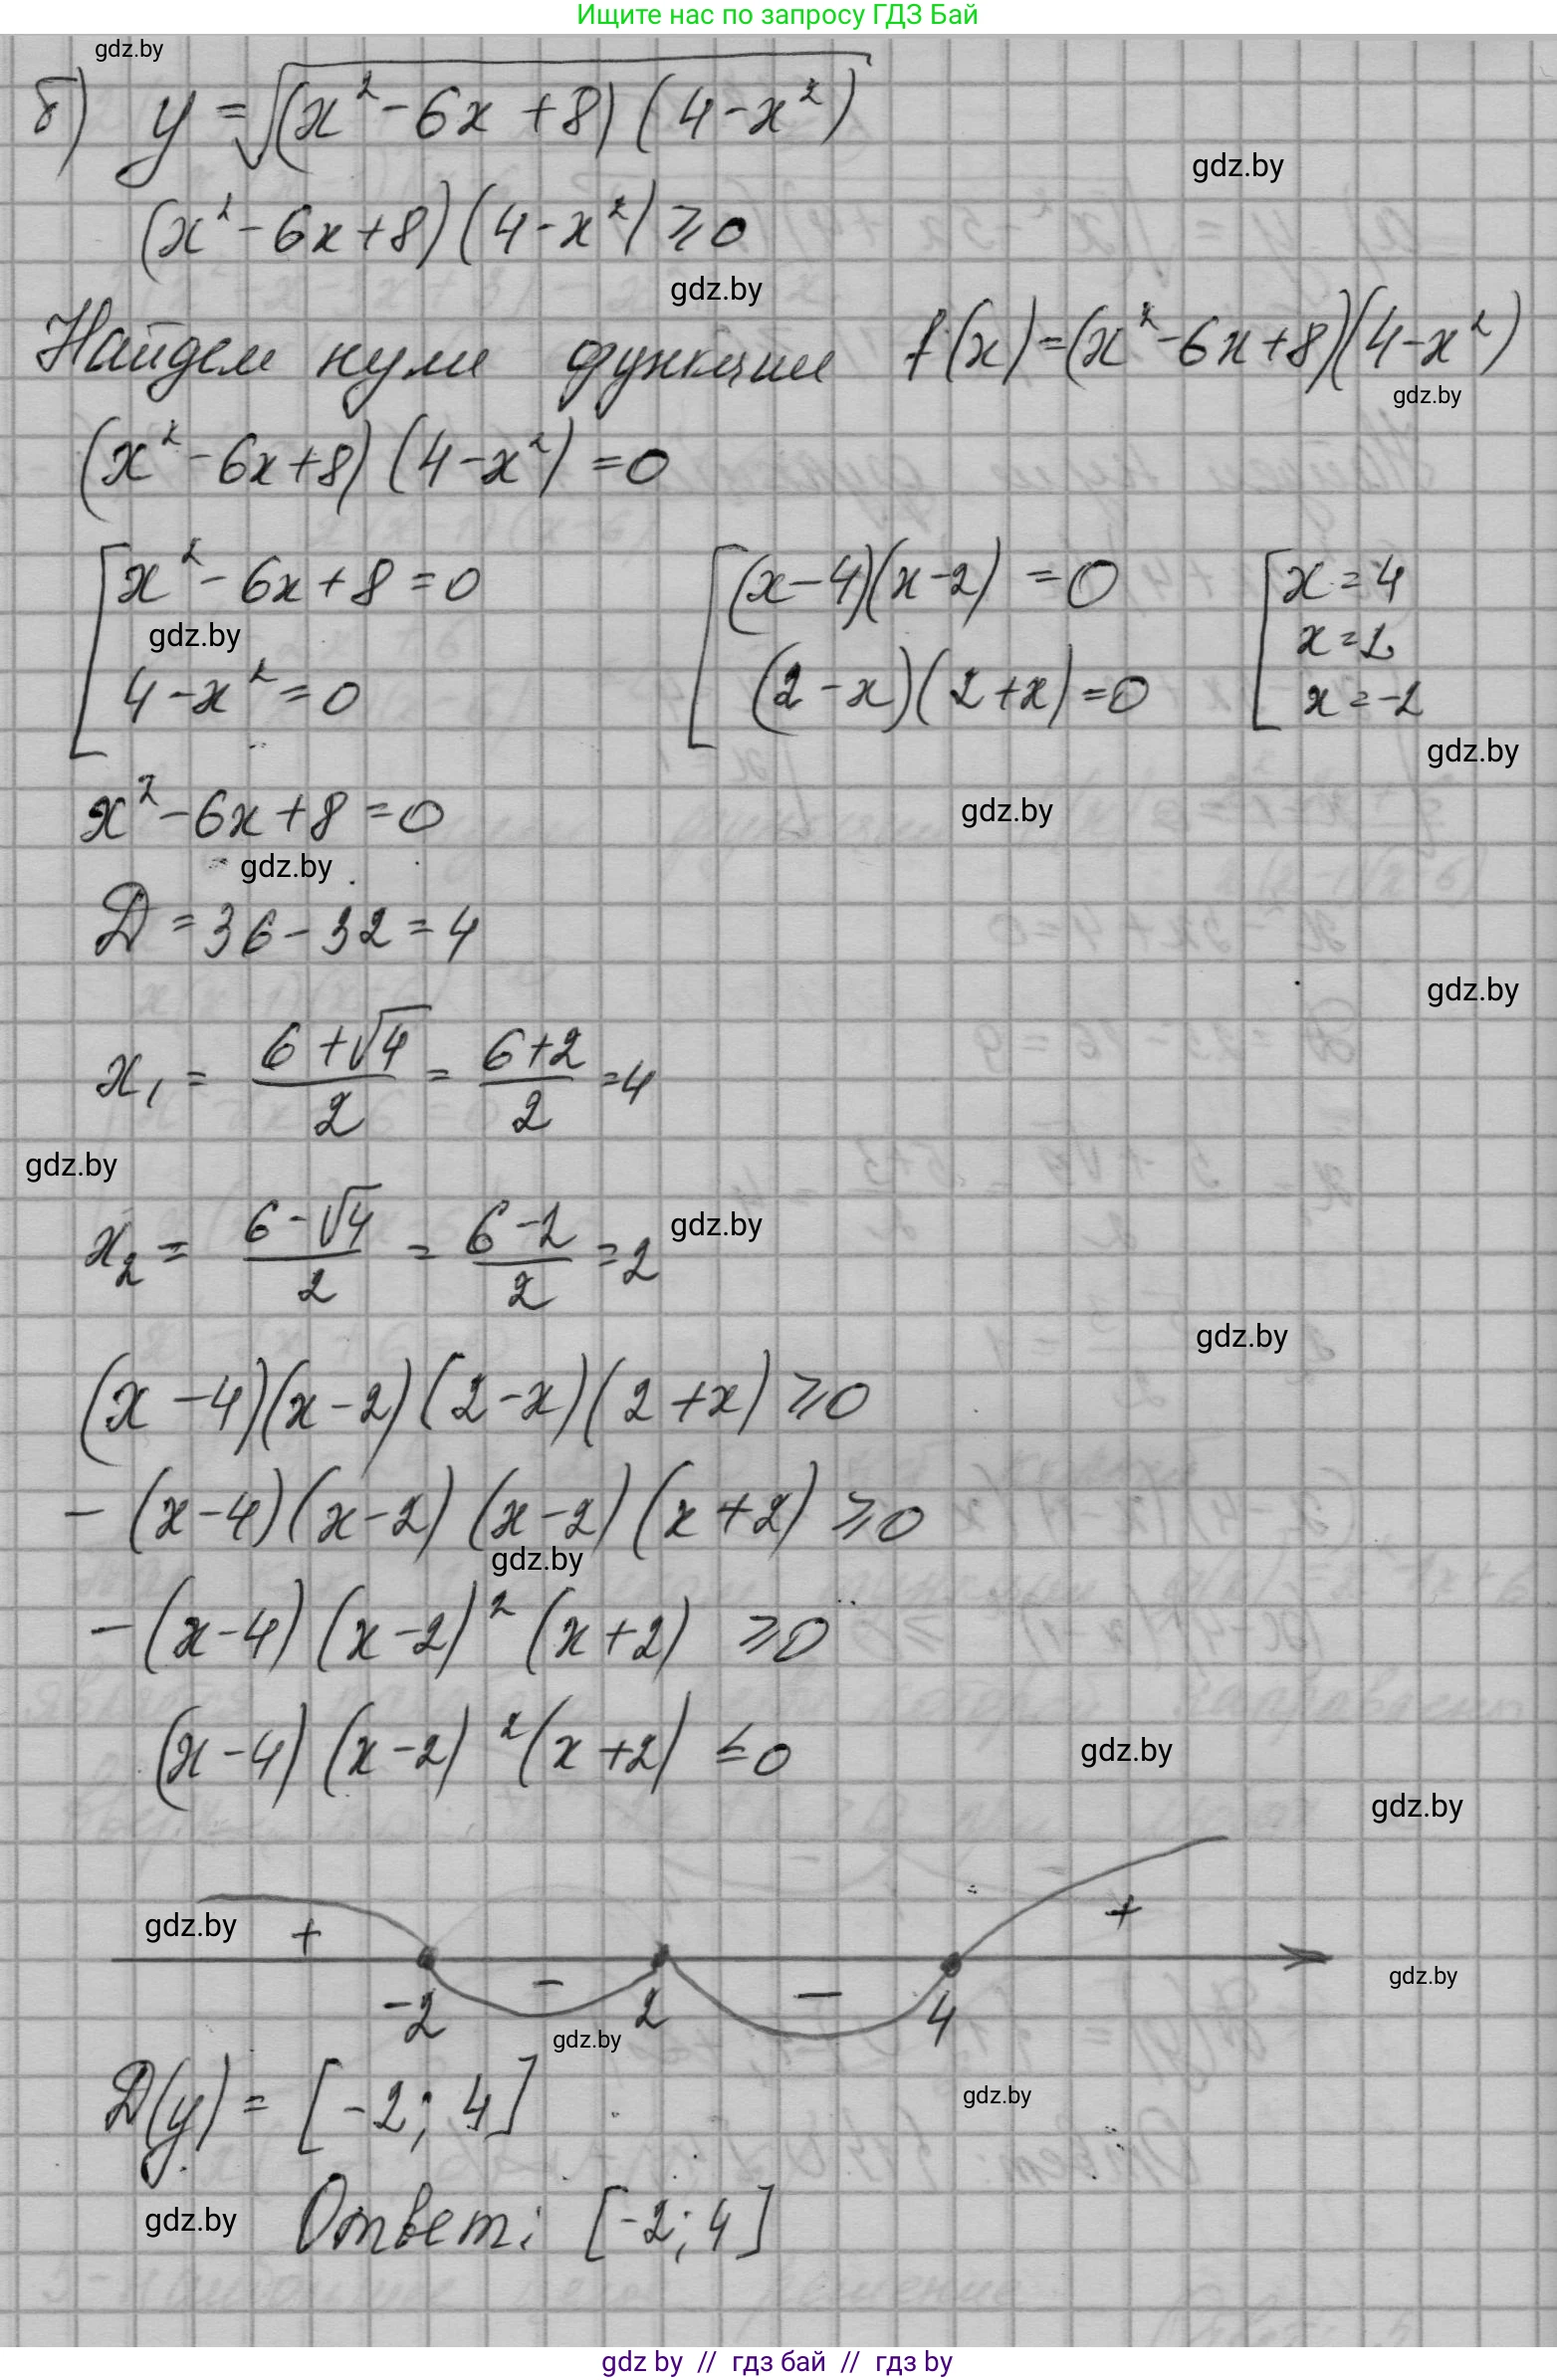 Ищите нас по запросу ГДЗ Бай
gdz.by
б) y = √((x² - 6x + 8)(4 - x²))
gdz.by
(x² - 6x + 8)(4 - x²) ⩾ 0
gdz.by
Найдем нули функции f(x) = (x² - 6x + 8)(4 - x²)
gdz.by
(x² - 6x + 8)(4 - x²) = 0
[x² - 6x + 8 = 0 [(x - 4)(x - 2) = 0 [x = 4
gdz.by x = 2
4 - x² = 0 (2 - x)(2 + x) = 0 x = -2
gdz.by
x² - 6x + 8 = 0 gdz.by
gdz.by
D = 36 - 32 = 4
gdz.by
x₁ = (6 + √4)/2 = (6 + 2)/2 = 4
gdz.by
x₂ = (6 - √4)/2 = (6 - 2)/2 = 2 gdz.by
gdz.by
(x - 4)(x - 2)(2 - x)(2 + x) ⩾ 0
- (x - 4)(x - 2)(x - 2)(x + 2) ⩾ 0
gdz.by
- (x - 4)(x - 2)²(x + 2) ⩾ 0
(x - 4)(x - 2)²(x + 2) ≤ 0 gdz.by
gdz.by
gdz.by + - - +
gdz.by
-2 2 4
gdz.by
D(y) = [-2; 4]
gdz.by
gdz.by Ответ: [-2; 4]
gdz by // гдз бай // гдз by